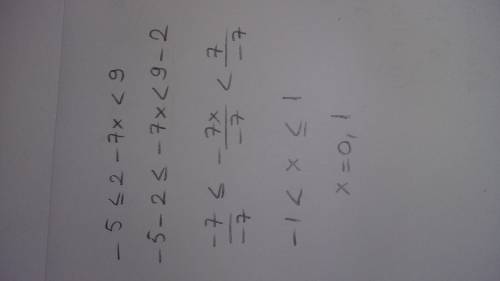 -5 ≤ 2 - 7x < 9
-5 - 2 ≤ - 7x < 9 - 2
-7/-7 ≤ - 7x/-7 < 7/-7
-1 < x ≤ 1
x = 0, 1